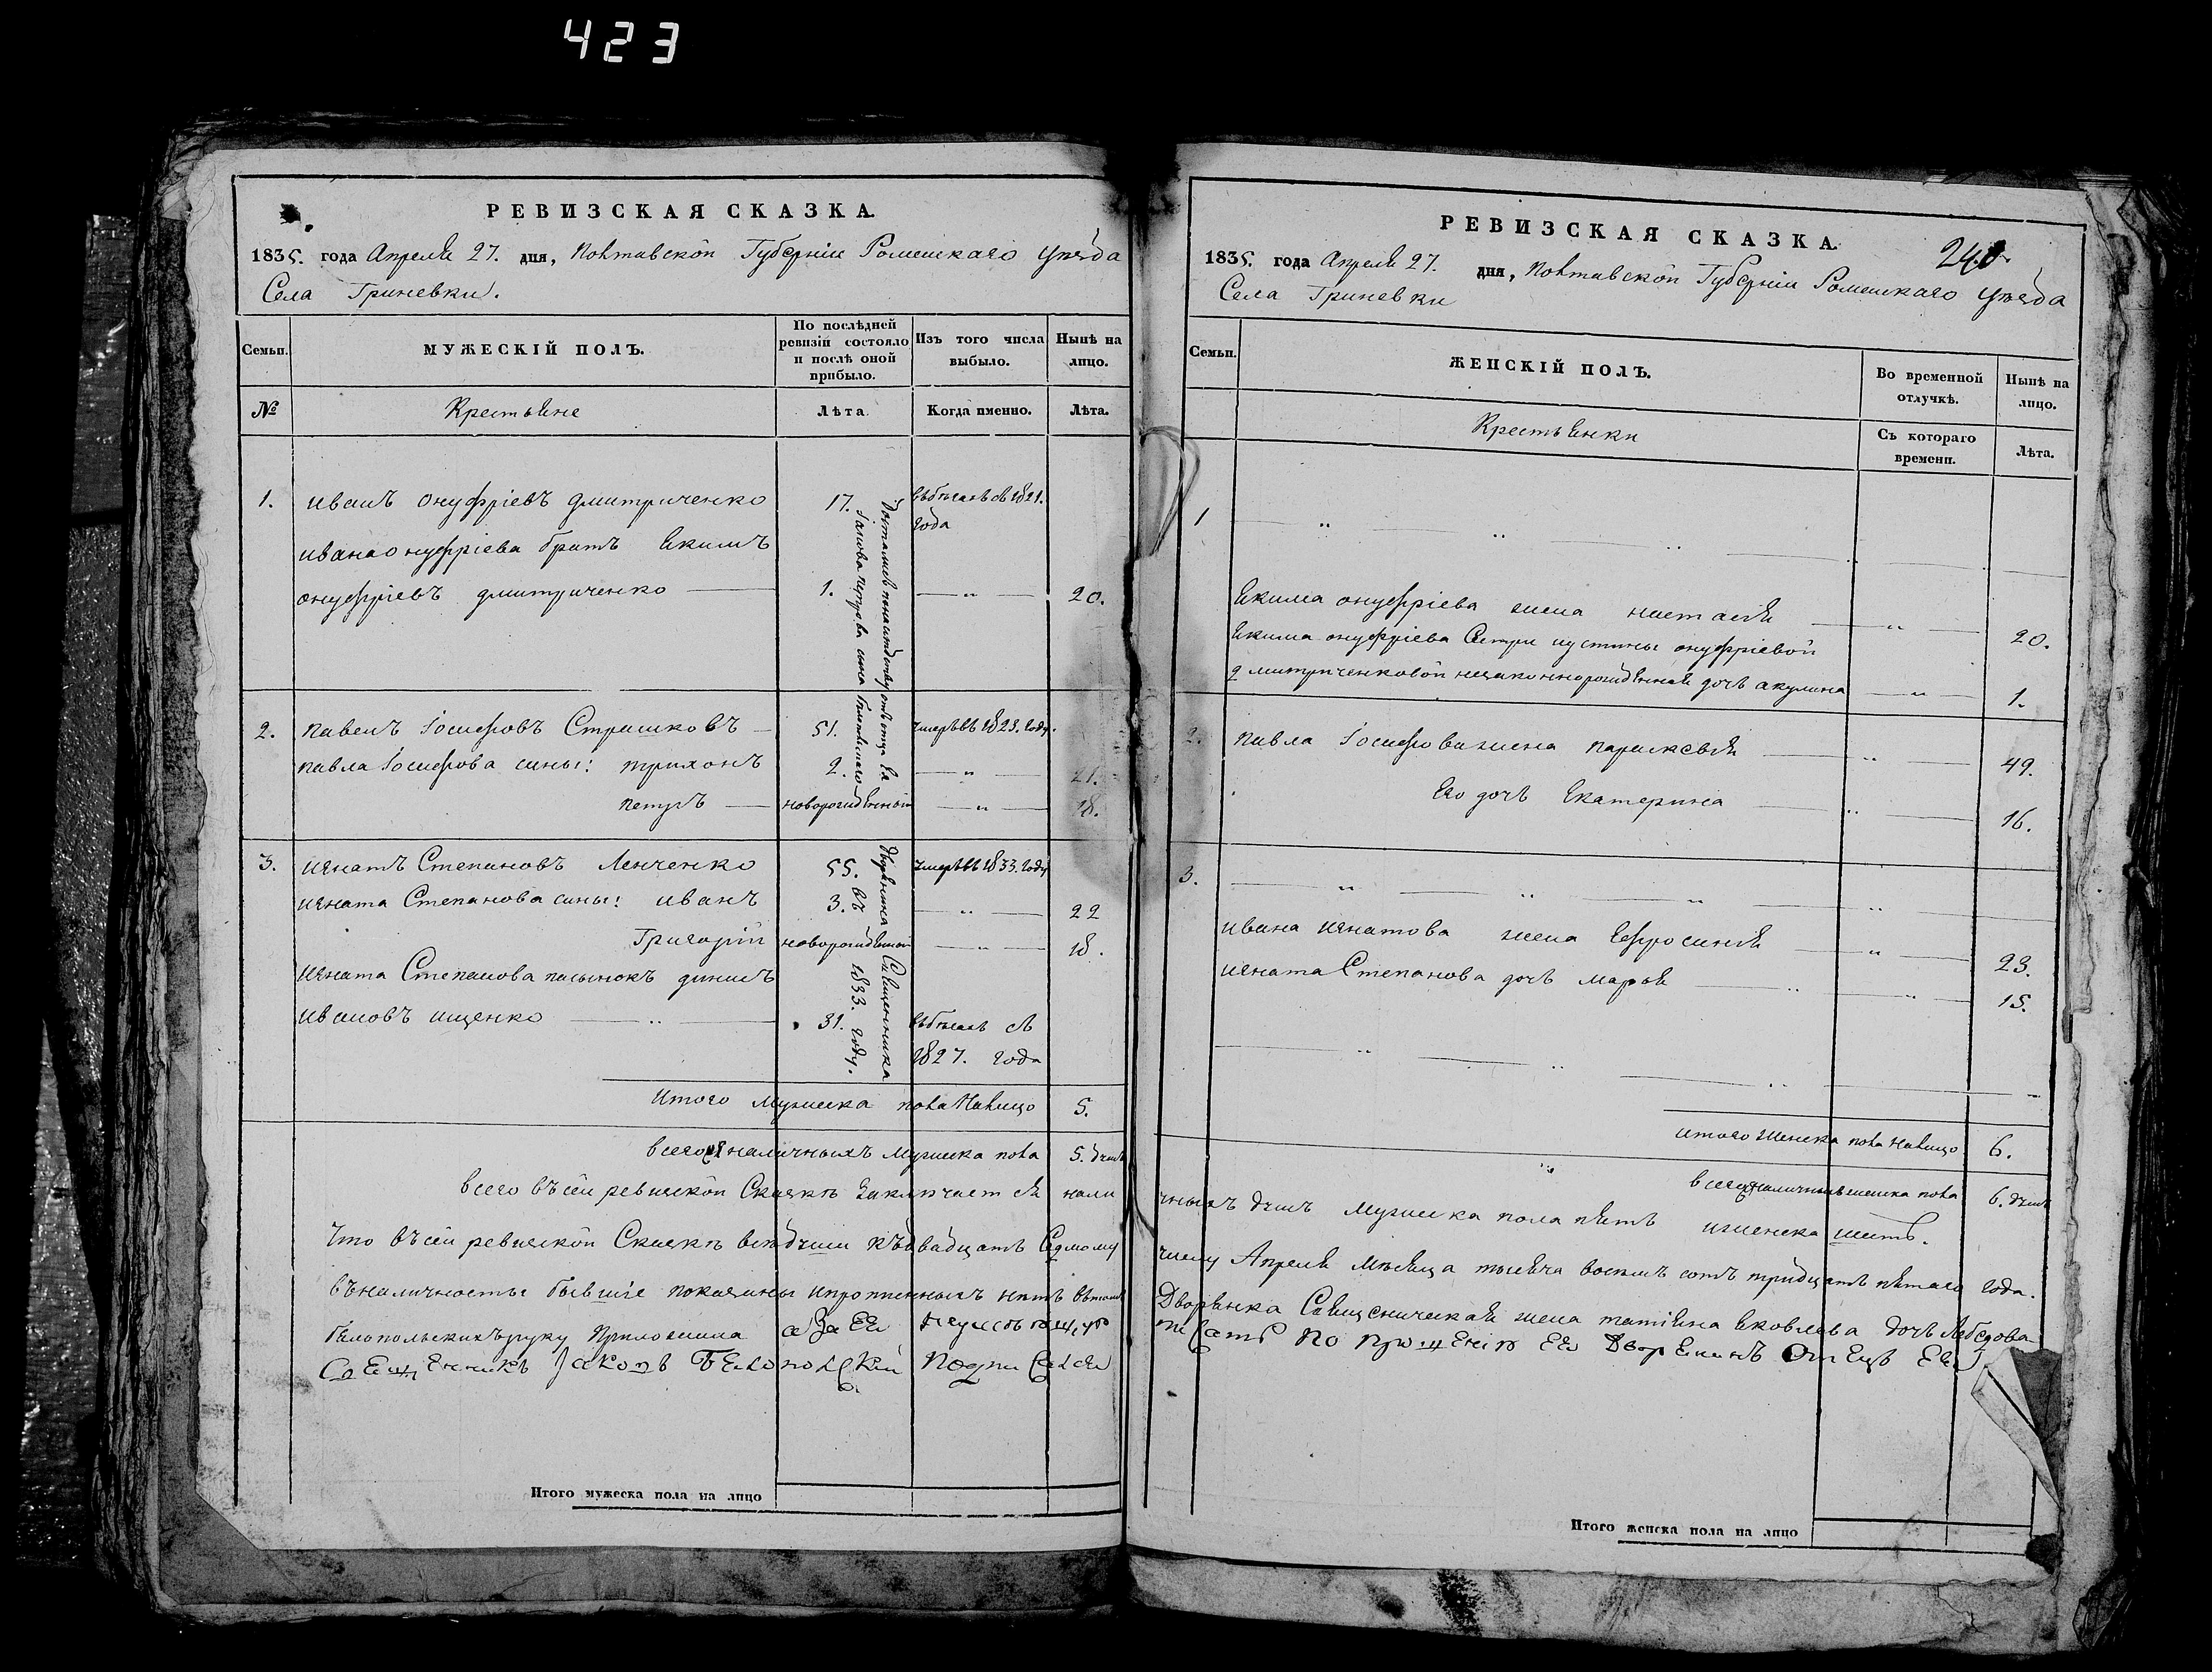 423
РЕВИЗСКАЯ СКАЗКА.
1835. года Апреля 27. дня, Полтавской Губерніи Роменскаго уѣзда
Села Гриневки.
Семьи.
МУЖЕСКІЙ ПОЛЪ.
По послѣдней ревизіи состояло и послѣ оной прибыло.
Изъ того числа выбыло.
Нынѣ на лицо.
№
Крестьяне
Лѣта.
Когда именно.
Лѣта.
1. иванъ онуфріевъ дмитриченко 17. въбѣгахъ съ 1821. года
ивана онуфріева братъ якимъ
онуфріевъ дмитриченко 1. — „ — 20.
2. павелъ Іосифовъ Страшковъ 51. умеръ въ 1823. году.
павла Іосифова сыны: трихонъ 2. — „ — 21.
петръ новорожденный — „ — 18.
3. игнатъ Степановъ Ленченко 55. умеръ въ 1833. году
игната Степанова сыны: иванъ 3. — „ — 22
Григорій новорожденный — „ — 18.
игната Степанова пасынокъ
ивановъ ищенко — „ — 31. въбѣгахъ съ
1827. года
Дворянина Священника
въ 1833. году.
итого мужеска пола налицо 5.
всего наличныхъ мужеска пола 5. душъ
всего въ сей ревизской Сказкѣ заключается нали
Что въ сей ревизской Сказкѣ всѣ души къ двадцать Седмому
въ наличности бывшіе показаны и пропущенныхъ нѣтъ
бѣлопольскихъ руку приложила а За Ея неумѣніемъ
Священникъ Іаковъ Белопольскій Подписался
Итого мужеска пола на лицо
РЕВИЗСКАЯ СКАЗКА.
240.
1835. года Апреля 27. дня, Полтавской Губерніи Роменскаго уѣзда
Села Гриневки
Семьи.
ЖЕНСКІЙ ПОЛЪ.
Во временной отлучкѣ.
Нынѣ на лицо.
Крестьянки
Съ котораго времени.
Лѣта.
1
якима онуфріева жена настасія — „ — 20.
якима онуфріева Сестри устины онуфріевой
дмитриченковой незаконнорожденная дочь акулина — „ — 1.
2. павла Іосифова жена параскевія — „ — 49.
Его дочь Екатерина — „ — 16.
3.
ивана игнатова жена Ефросинія — „ — 23.
игната Степанова дочь марья — „ — 15.
итого женска пола налицо 6.
всего наличныхъ женска пола 6. душъ
чныхъ душъ мужеска пола пять и женска шесть.
числу Апреля Мѣсяца тысяча восемь сотъ тридцать пятаго года.
Дворянка Священическая жена татіяна яковлева дочь
писать По прошенію Ея Дворянинъ Отецъ Ея
Итого женска пола на лицо